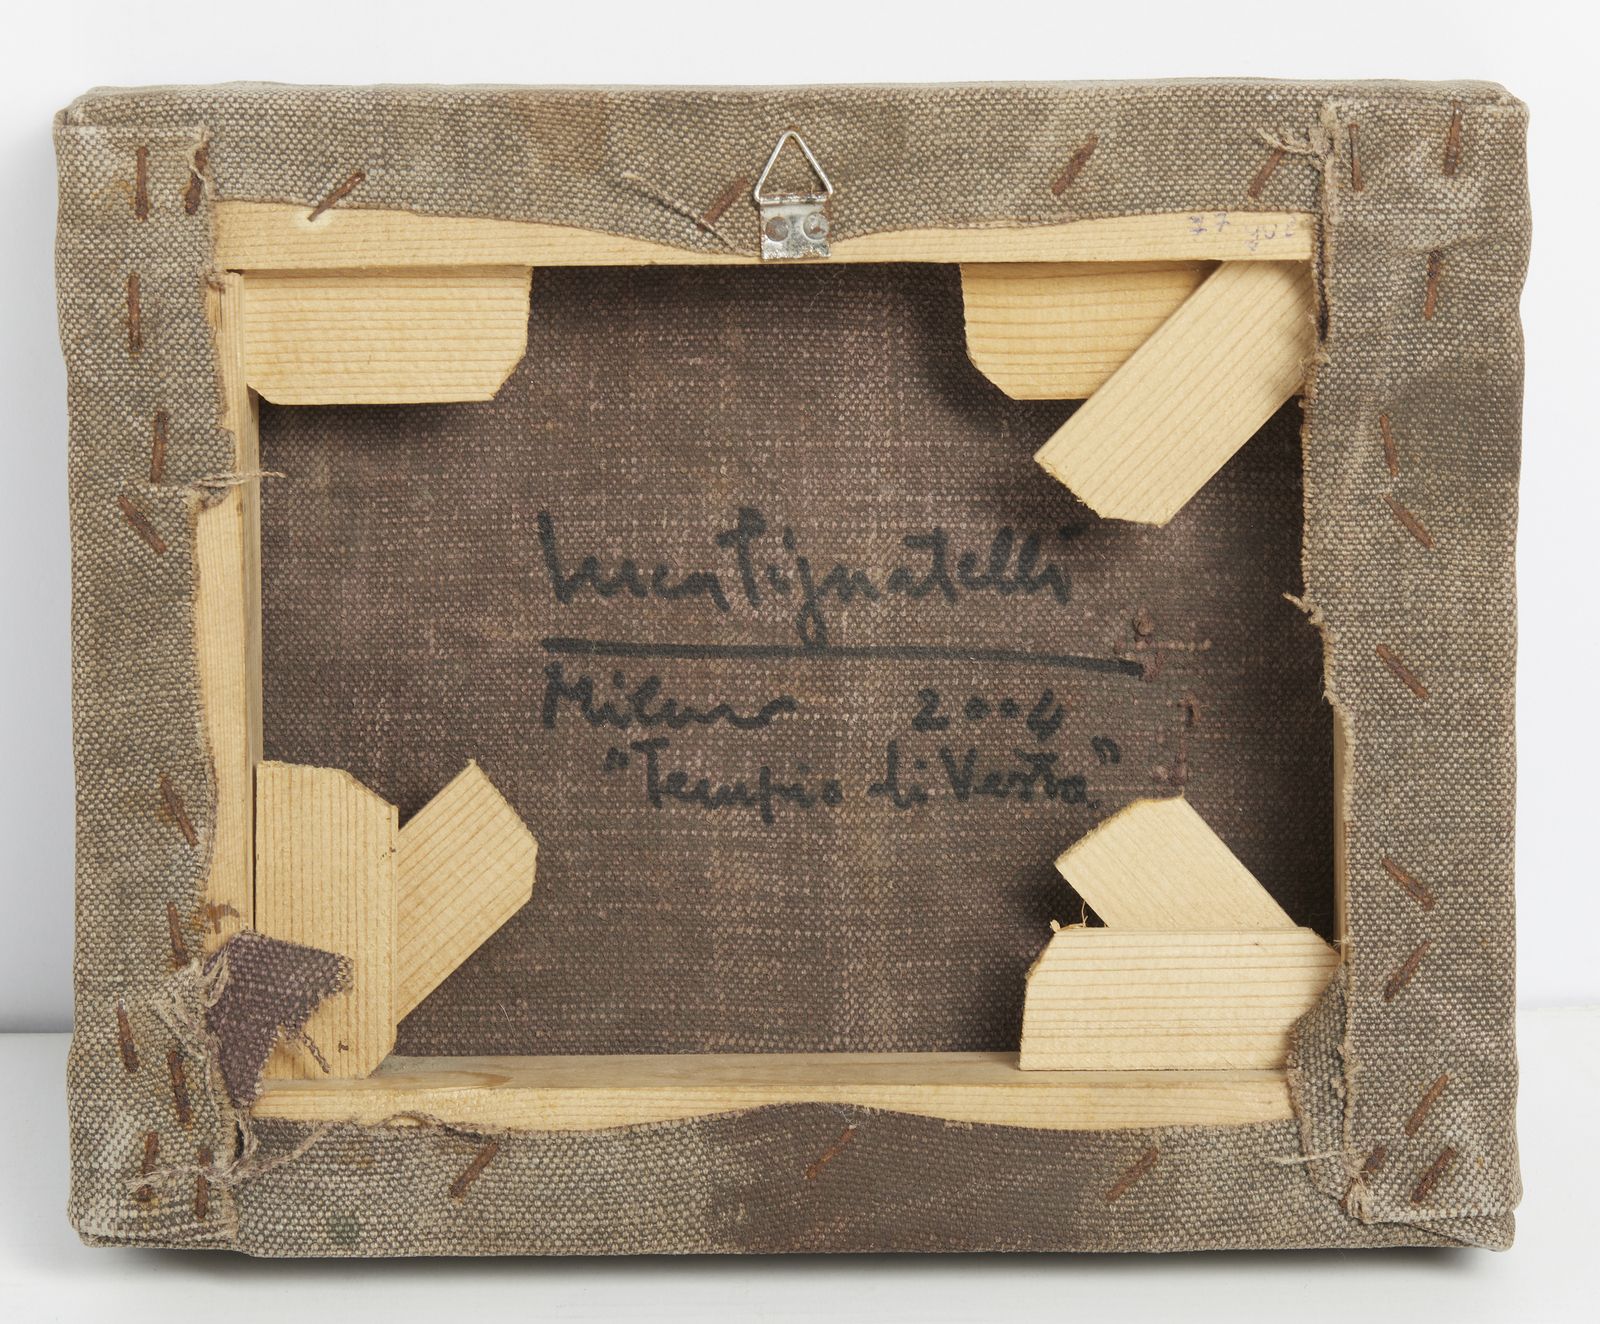 Luca Pignatelli
Milano 2004
"Tempio di Vesta"